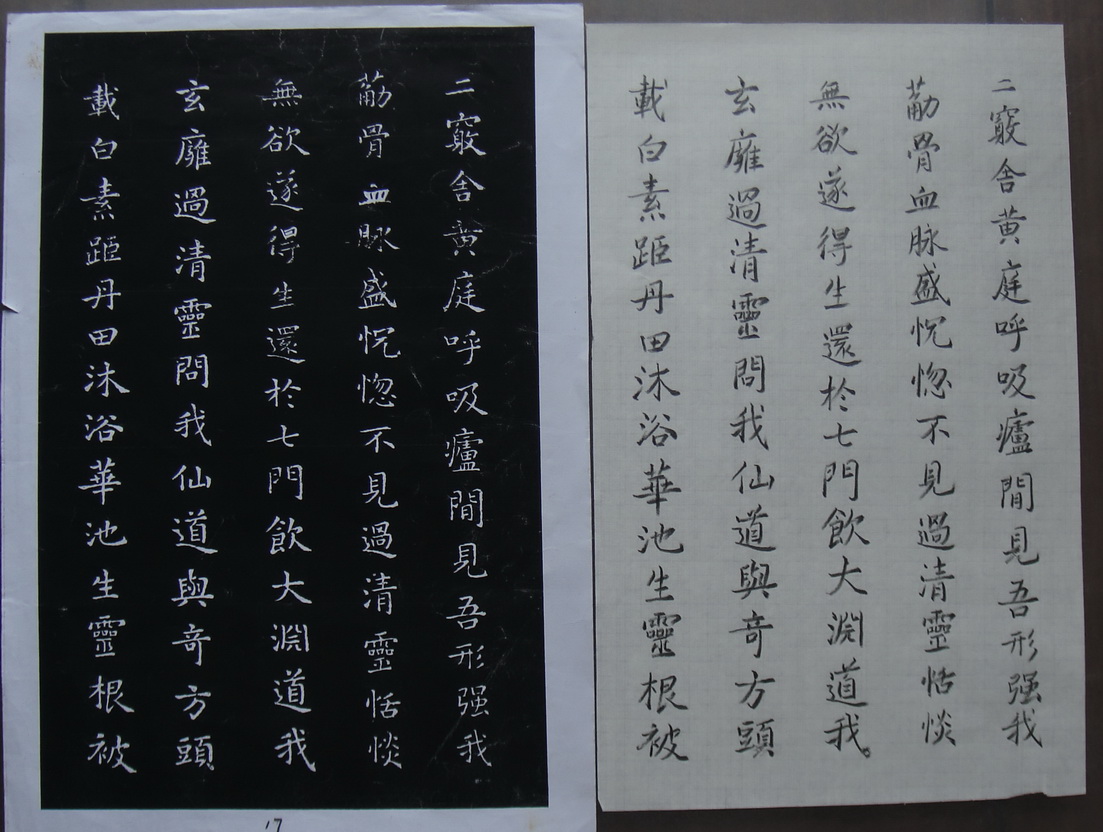 二竅舍黄庭呼吸廬間見吾形强我
筋骨血脉盛怳惚不見過清靈恬惔
無欲遂得生還於七門飲大淵道我
玄廱過清靈問我仙道與奇方頭
載白素距丹田沐浴華池生靈根被
17
二竅舍黄庭呼吸廬間見吾形强我
筋骨血脉盛怳惚不見過清靈恬惔
無欲遂得生還於七門飲大淵道我
玄廱過清靈問我仙道與奇方頭
載白素距丹田沐浴華池生靈根被